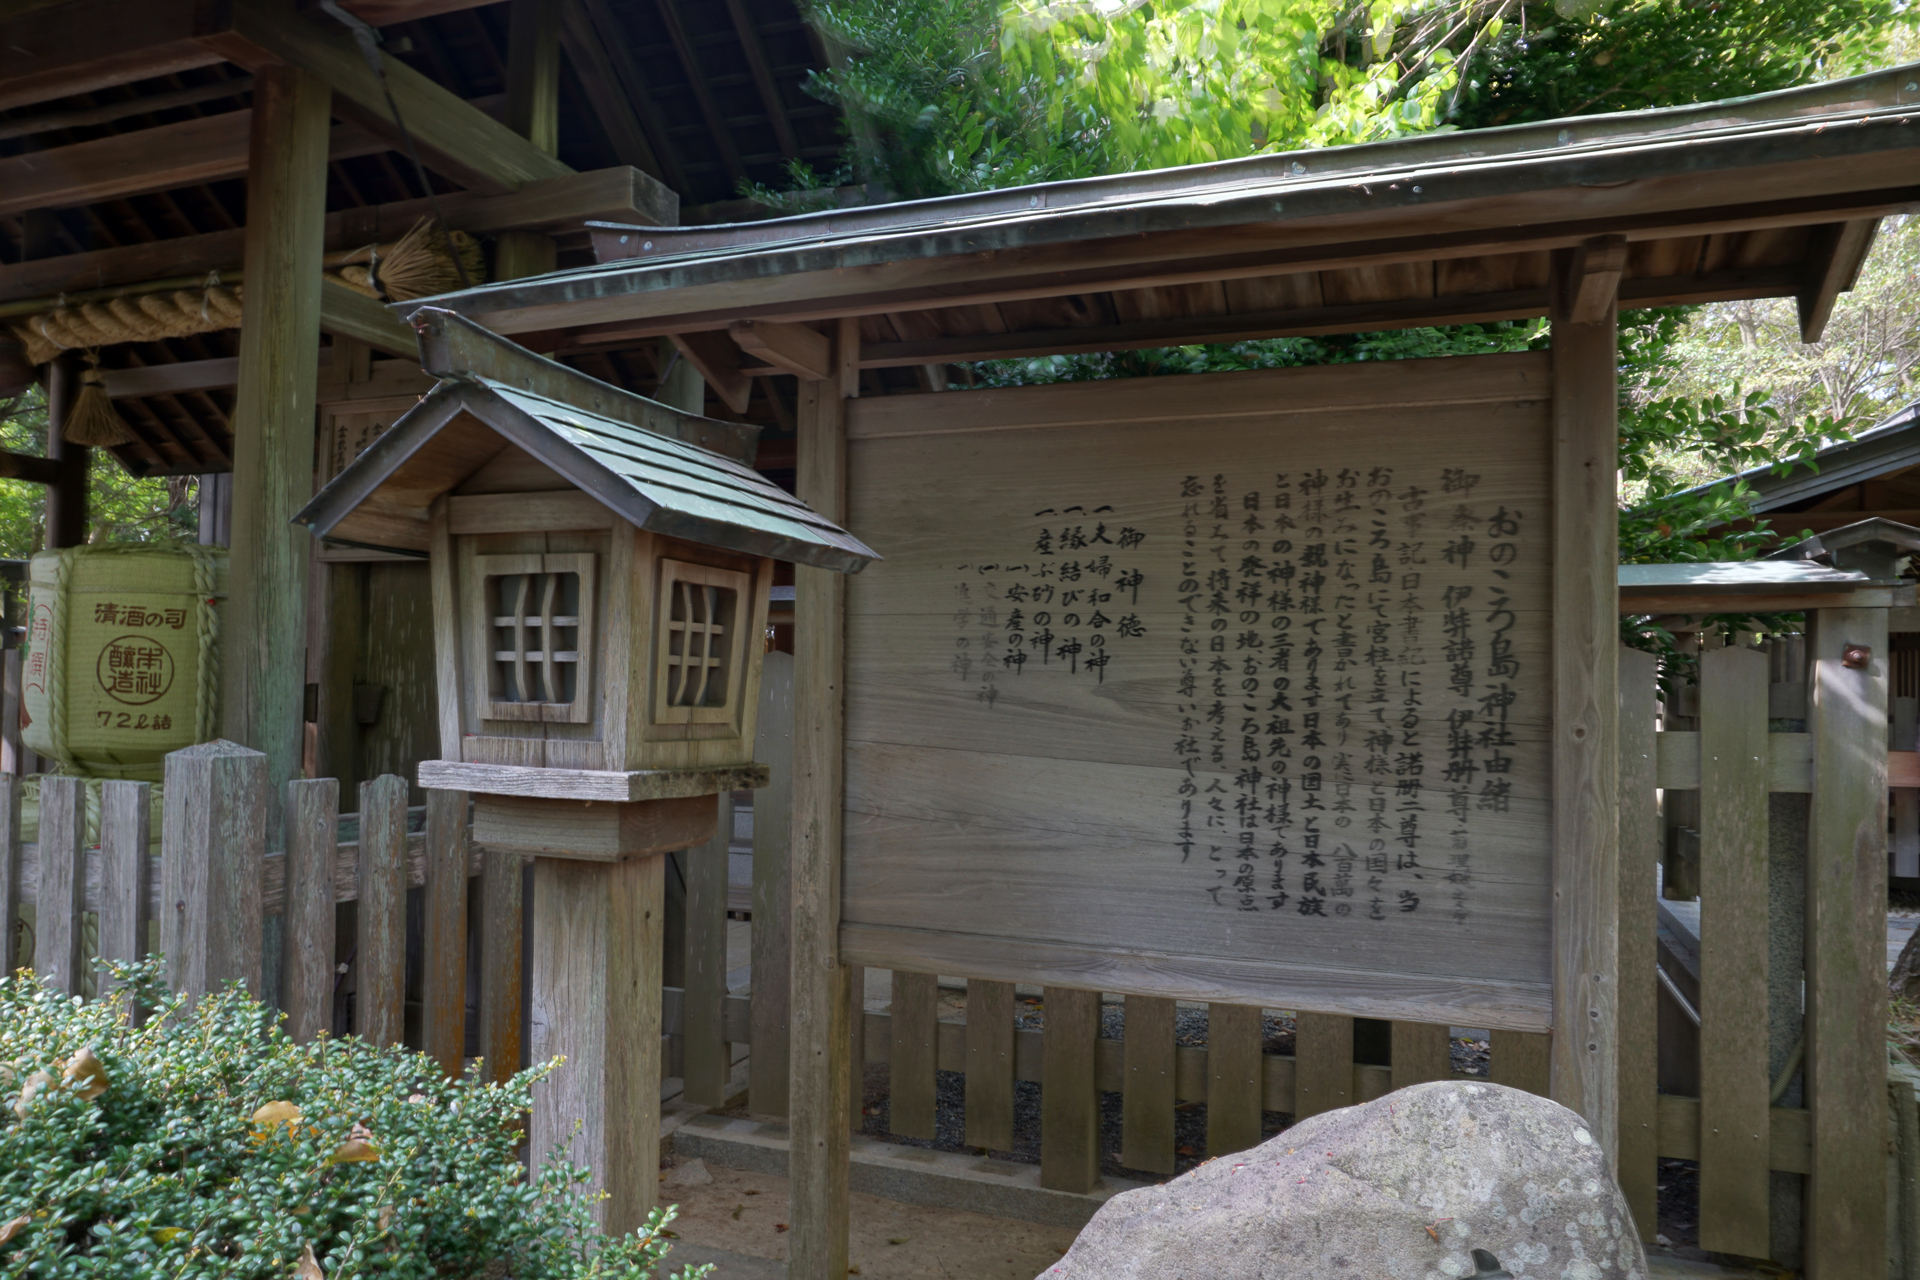 おのころ島神社由緒
御祭神 伊弉諾尊 伊弉册尊
古事記日本書紀によると諾册二尊は、当
おのころ島にて宮柱を立て神様と日本の国々を
お生みになったと書かれてあり実に日本の八百萬の
神様の親神様であります日本の国土と日本民族
と日本の神様の三者の大祖先の神様であります
日本の発祥の地おのころ島神社は日本の原点
を省みて将来の日本を考える、人々に、とって
忘れることのできない尊いお社であります
御神徳
一、夫婦和合の神
一、縁結びの神
一、産ぶ砂の神
(一)安産の神
(一)交通安全の神
(一)進学の神
清酒の司
本社
醸造
72ℓ詰
特撰